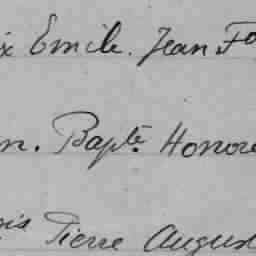 ix Emile. Jean Fo
n. Bapte Honoré
is Pierre August